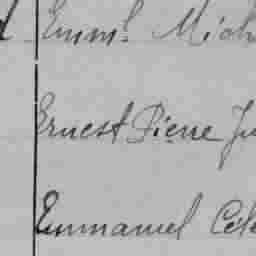 Emml. Mich
Ernest Pierre Ju
Emmanuel Céle